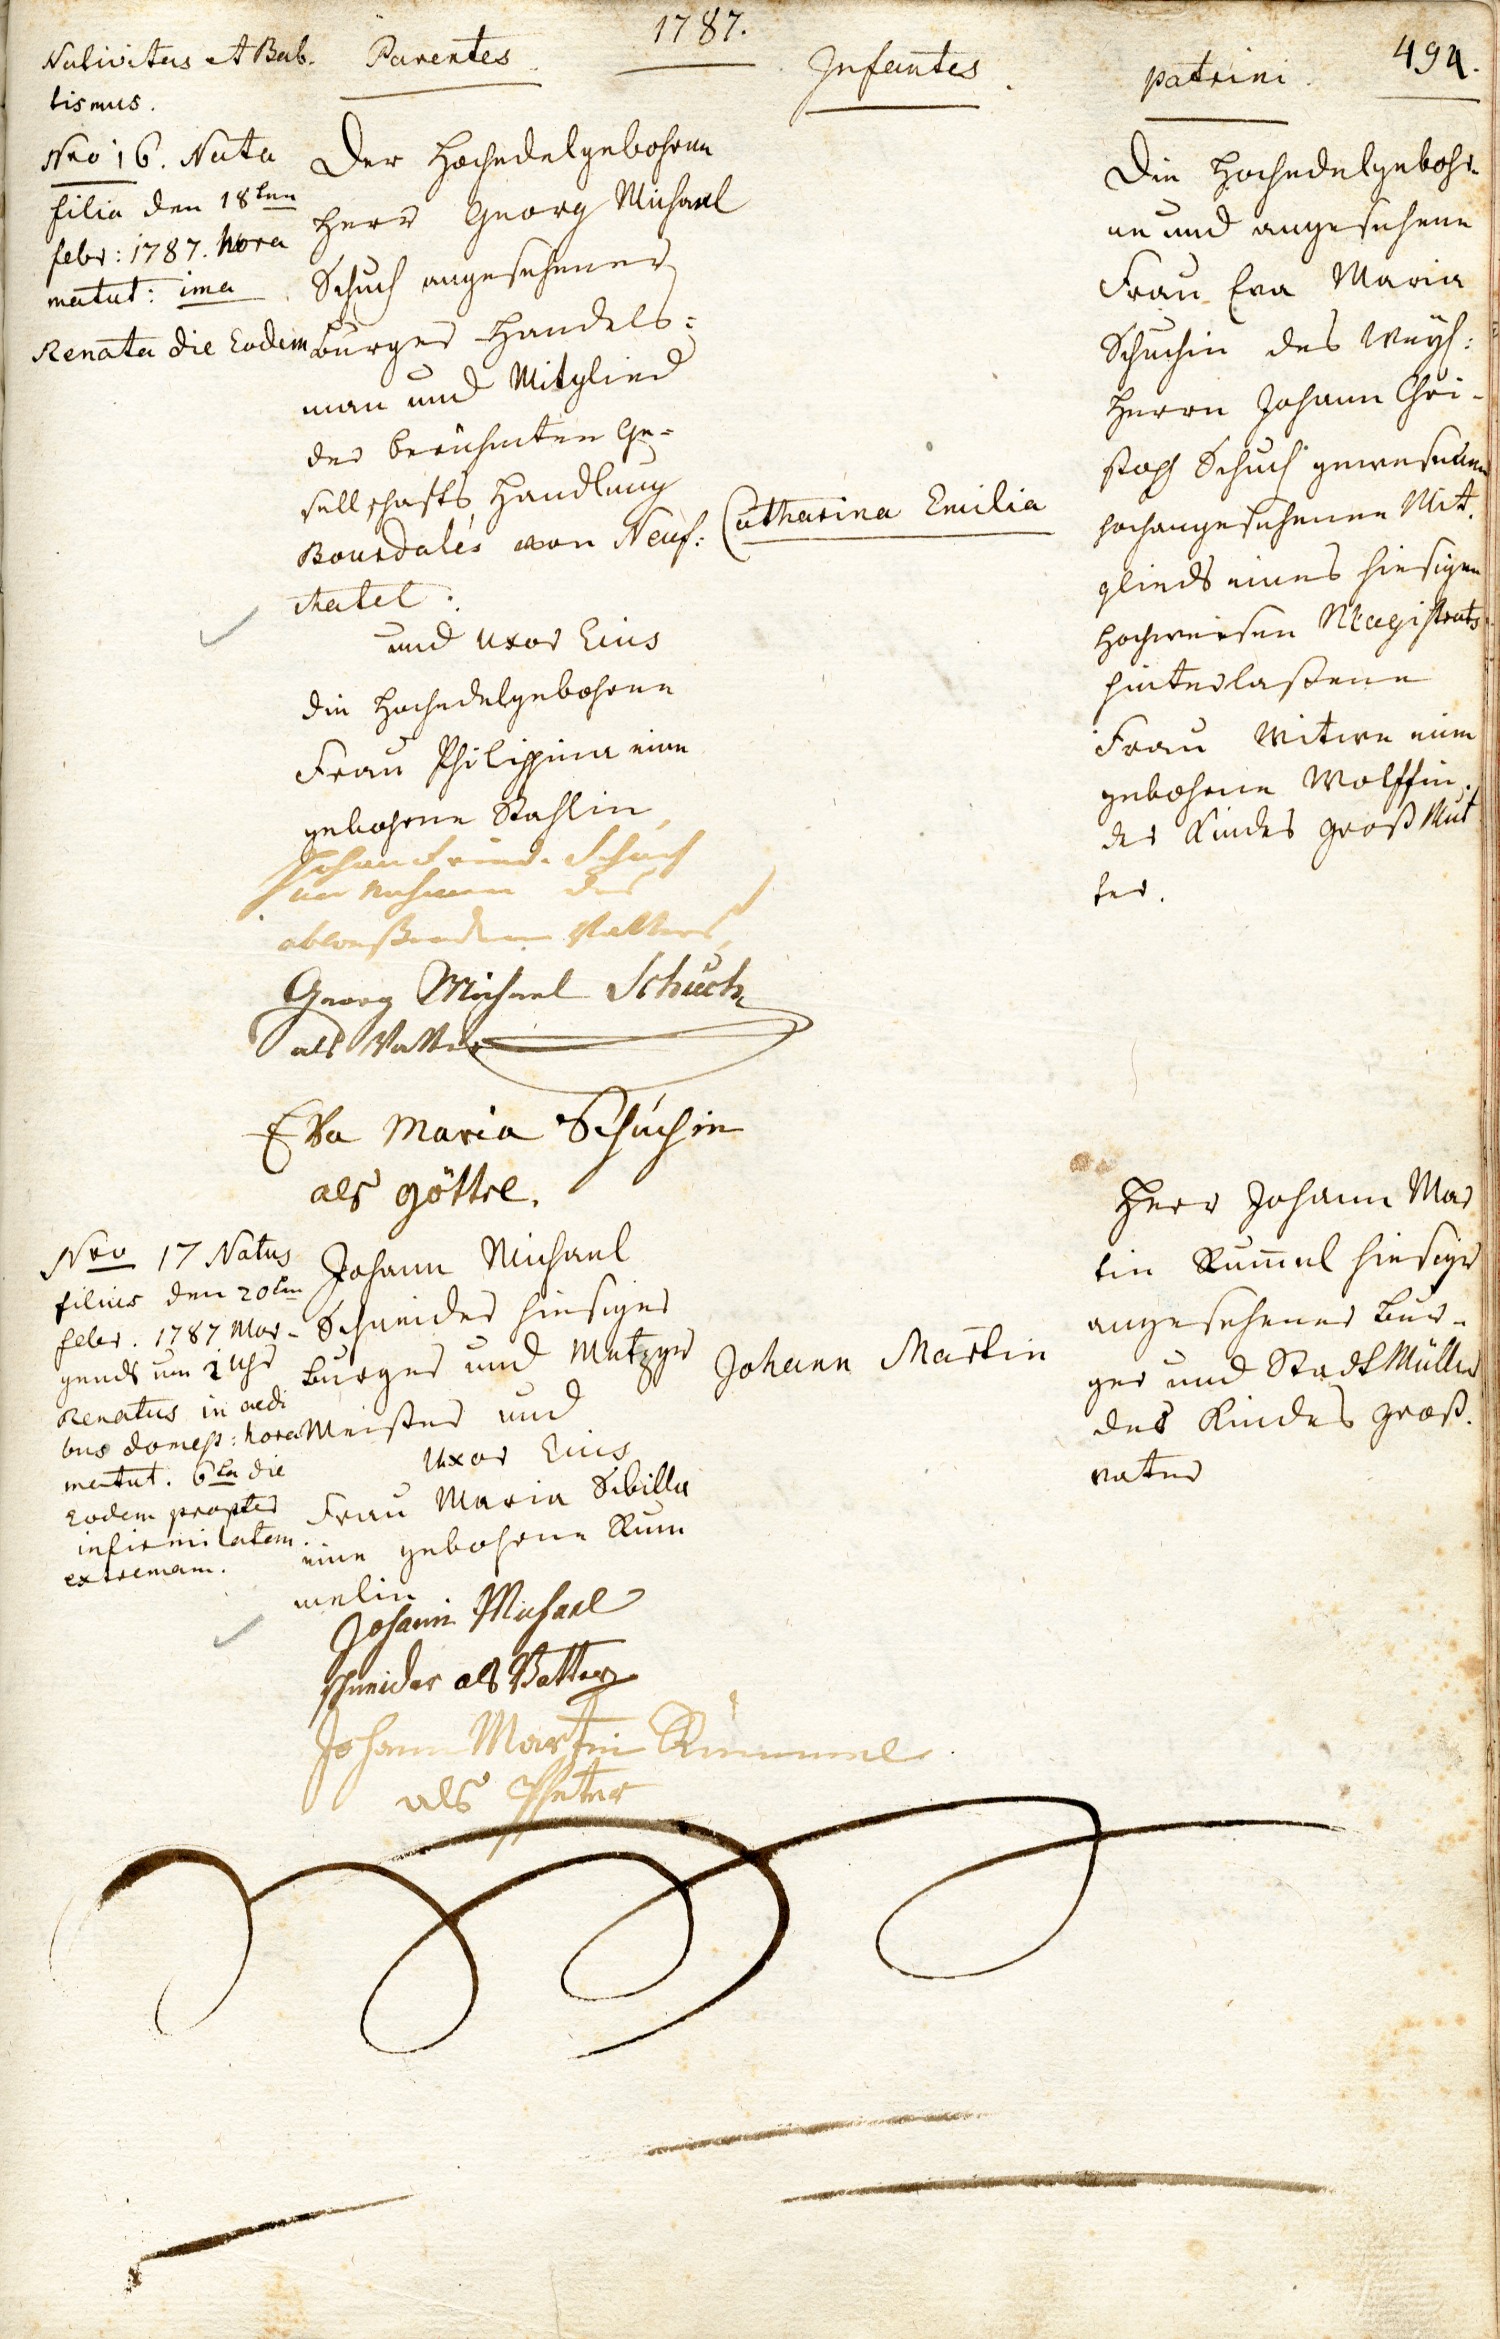 1787.
494.
Nativitas et Bab-
tismus.
Parentes
Infantes.
patrini.
Nro 16. Nata
filia den 18ten
febr: 1787. hora
matut: ima
Renata die Eodem
Der Hochedelgebohrne
Herr Georg Michael
Schuch angesehener
Burger Handels-
man und Mitglied
der berühmten Ge-
sellschafts Handlung
Bourdalés von Neuf-
chatel:
und uxor Eius
die Hochedelgebohrne
Frau Philippina eine
gebohrne Stahlin
Johan Fried. Schuch
im Nahmen des
abweßenden Vatters
Georg Michael Schuch
als Vatter
Eva Maria Schuchin
als göttel.
Catharina Emilia
Die Hochedelgebohr-
ne und angesehene
Frau Eva Maria
Schuchin des Weyl:
Herrn Johann Chri-
stoph Schuch gewesenen
hochangesehenen Mit-
glieds eines hiesigen
Hochweisen Magistrats
hinterlaßene
Frau Witwe eine
gebohrne Wolffin.
des Kindes groß Mut
ter.
Nro 17 Natus
filius den 20ten
febr. 1787 Mor-
gends um 2 Uhr
Renatus in aedi
bus domest: hora
matut. 6ta die
Eodem propter
infirmitatem
extremam.
Johann Michael
Schneider hiesiger
Burger und Metzger
Meister und
Uxor Eius
Frau Maria Sibilla
eine gebohrne Kum
melin
Johann Michael
schneider als Vatter
Johann Martin Kümmel
als Pfetter
Johann Martin
Herr Johann Mar
tin Kum̄el hiesiger
angesehener Bur-
ger und Stadt Müller
des Kindes groß-
vater